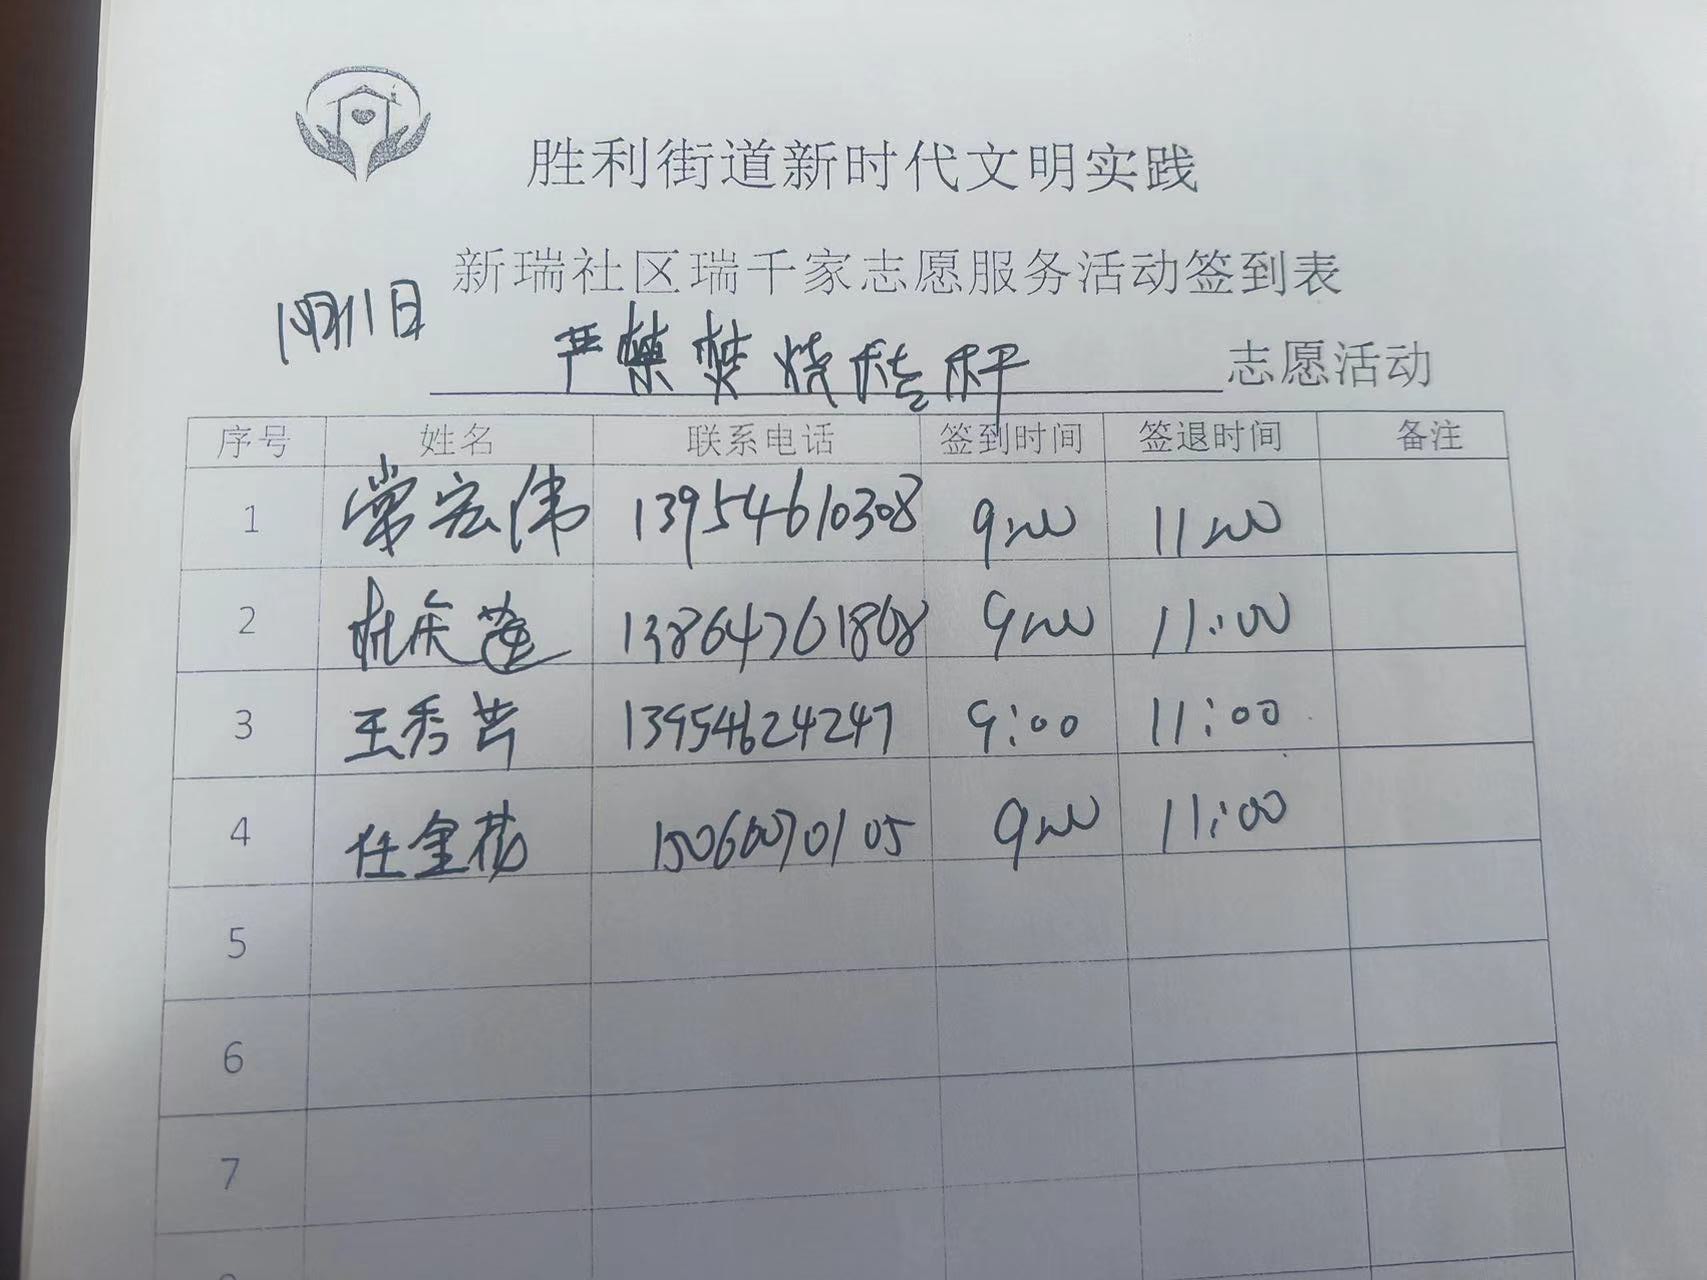 胜利街道新时代文明实践
新瑞社区瑞千家志愿服务活动签到表
10月11日
严禁焚烧秸秆 志愿活动
序号 姓名 联系电话 签到时间 签退时间 备注
1 常宏伟 13954610308 9:00 11:00
2 13864761868 9:00 11:00
3 王秀芹 13954624247 9:00 11:00
4 任金花 15066070105 9:00 11:00
5
6
7